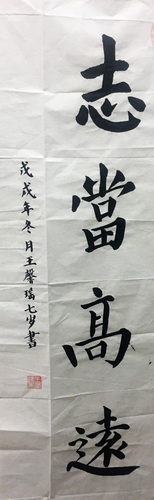 志當高遠
戊戌年冬月王馨瑶七岁書